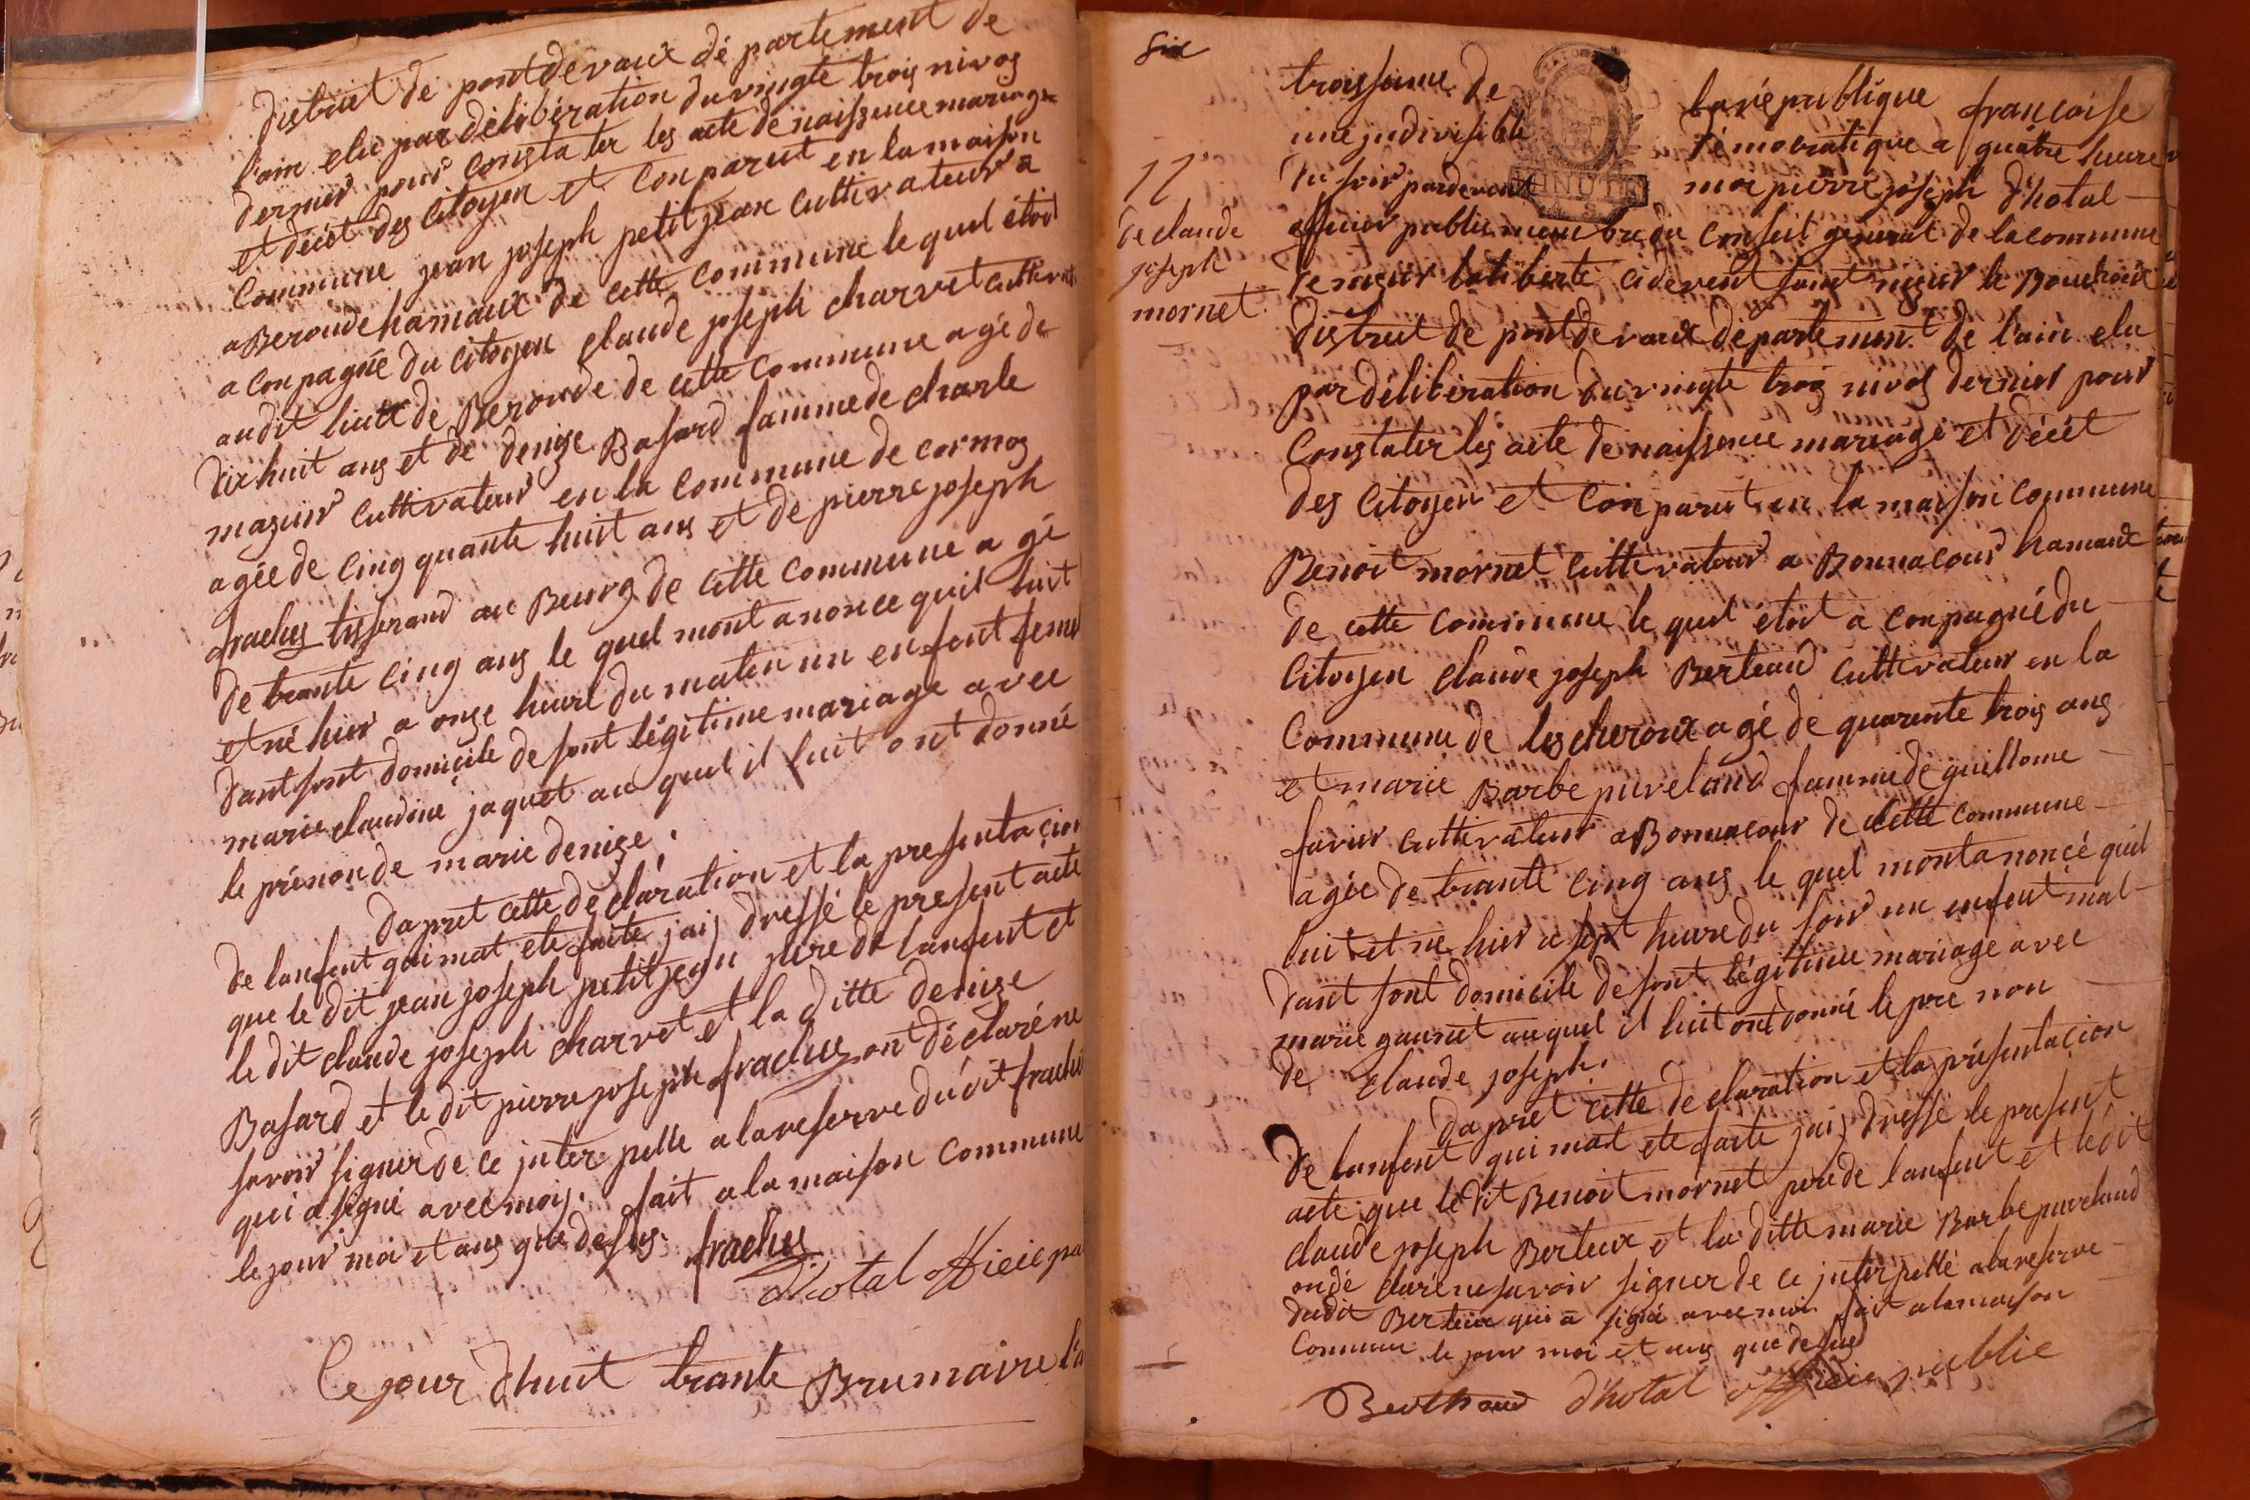 district de pontdevaux dé partement de
l'ain elu par délibération du vingte trois nivos
dernier pour constater les acte de naissence mariage
et décét des citoyen et conparut en la maison
commune jean joseph petitjean cultivateur a
a Beroude hamaux de cette commune le quel étoit
a conpagnée du citoyen claude joseph charvet cultivat
audit lieux de Beroude de cette commune agé de
dix huit ans et de denize Basard famme de charle
mazuir cultivateur en la commune de cormoz
agée de cinq quante huit ans et de pierre joseph
frachus tisserand au Bourg de cette commune a gé
de trante cinq ans le quel mont anonce quil luit
et né hier a onze heure du matin un enfent femel
dant sont domicile de sont légitime mariage avec
marie claudine jaquet au quel il luit ont donné
le prénon de marie denize.
dapret cette déclaration et la presentacion
de lanfent qui mat ete faite jaij dressé le present acte
que le dit jean joseph petitjean pere de lanfent et
le dit claude joseph charvet et la ditte denize
Basard et le dit pierre joseph frachus ont déclaré ne
savoir signer de ce jnter pelle a la reserve du dit frachus
qui a signé avec moij. fait a la maison commune
le jour moi et ans que desus. frachus
d'hotal officie pu
Ce jour dhuit trante Brumaire l'a
six
troissieme de la république francoise
une jndivisible démocratique a quatre heure
du soir pardevant moi pierre joseph d'hotal
MINUTE
officier public membre du conseil general de la commune
de nizier laliberte cidevent saint nizier le Bouchoux
district de pontdevaux département de l'ain elu
par délibération du vingte trois nivos dernier pour
constater les acte de naissence mariage et décét
des citoyen et conparut en la maison commune
Benoit mornet cultivateur a Bonnacour hamaux
de cette commune le quel étoit a conpagné du
citoyen claude joseph Berteaud cultivateur en la
commune de lescheroux agé de quarente trois ans
et marie Barbe purelaud famme de guillome
favier cultivateur a Bonnacour de cette commune
agée de trante cinq ans le quel mont anoncé quil
luit et né hier a sept heure du soir un enfent mal
dant sont domicile de sont légitime mariage avec
marie gaunet au quel il luit ont donné le pre non
de claude joseph.
dapret cette de claration et la présentacion
de lanfent qui mat ete faite jaij dressé le present
acte que le dit Benoit mornet pere de lanfent et le dit
claude joseph Berteux et la ditte marie Barbe purelaud
on dé claré ne savoir signer de ce jnterpellé a la reserve
dudit Berteux qui a signé avec moi fait a la maison
commune le jour moi et ans que desus
Berthaud d'hotal officie publie
de claude
joseph
mornet